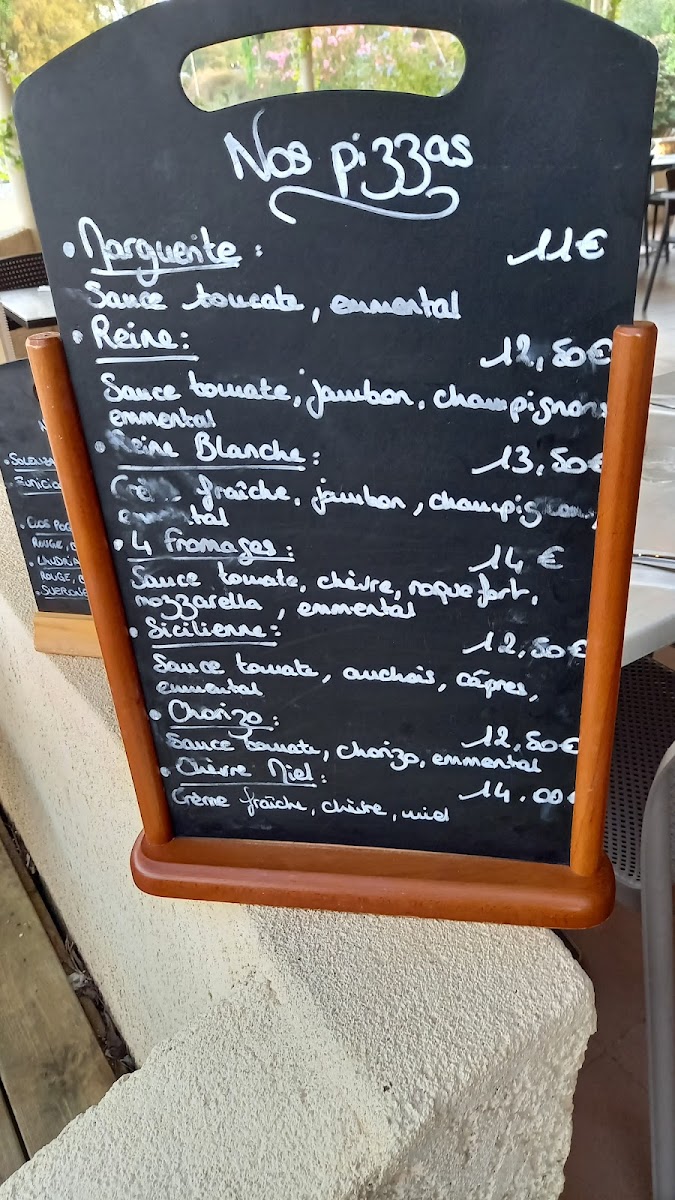 Nos pizzas
• Marguerite : 11€
Sauce tomate, emmental
• Reine : 12,50€
Sauce tomate, jambon, champignons
emmental
• Reine Blanche : 13,50€
Crème fraîche, jambon, champignons,
emmental
• 4 Fromages : 14 €
Sauce tomate, chèvre, roquefort,
mozzarella, emmental
• Sicilienne : 12,50€
Sauce tomate, anchois, câpres,
emmental
• Chorizo : 12,50€
Sauce tomate, chorizo, emmental
• Chèvre Miel : 14.00€
Crème fraîche, chèvre, miel
ROUGE,
ROUGE,